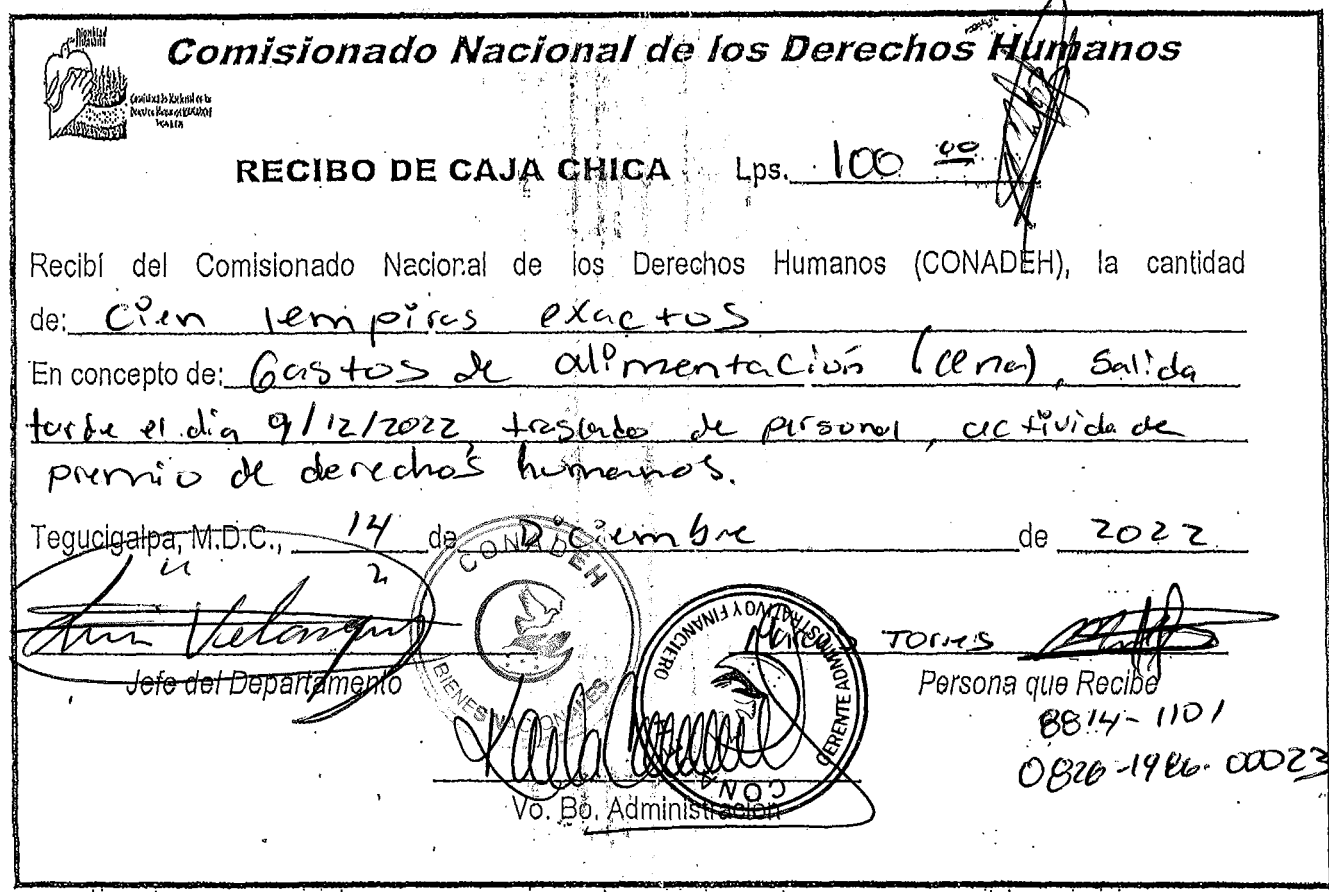 Dignidad Humana
Comisionado Nacional de los Derechos Humanos
RECIBO DE CAJA CHICA Lps. 100 00
Recibí del Comisionado Nacional de los Derechos Humanos (CONADEH), la cantidad
de: Cien lempiras exactos
En concepto de: Gastos de alimentación (cena), salida
tarde el día 9/12/2022, traslado de personal, actividad de
premio de derechos humanos.
Tegucigalpa, M.D.C., 14 de Diciembre de 2022
CONADEH
BIENES NACIONALES
GERENTE ADMINISTRATIVO Y FINANCIERO
CONA
Torres
Jefe del Departamento
Persona que Recibe
8814-1101
0826-1986-00023
Vo. Bo. Administración